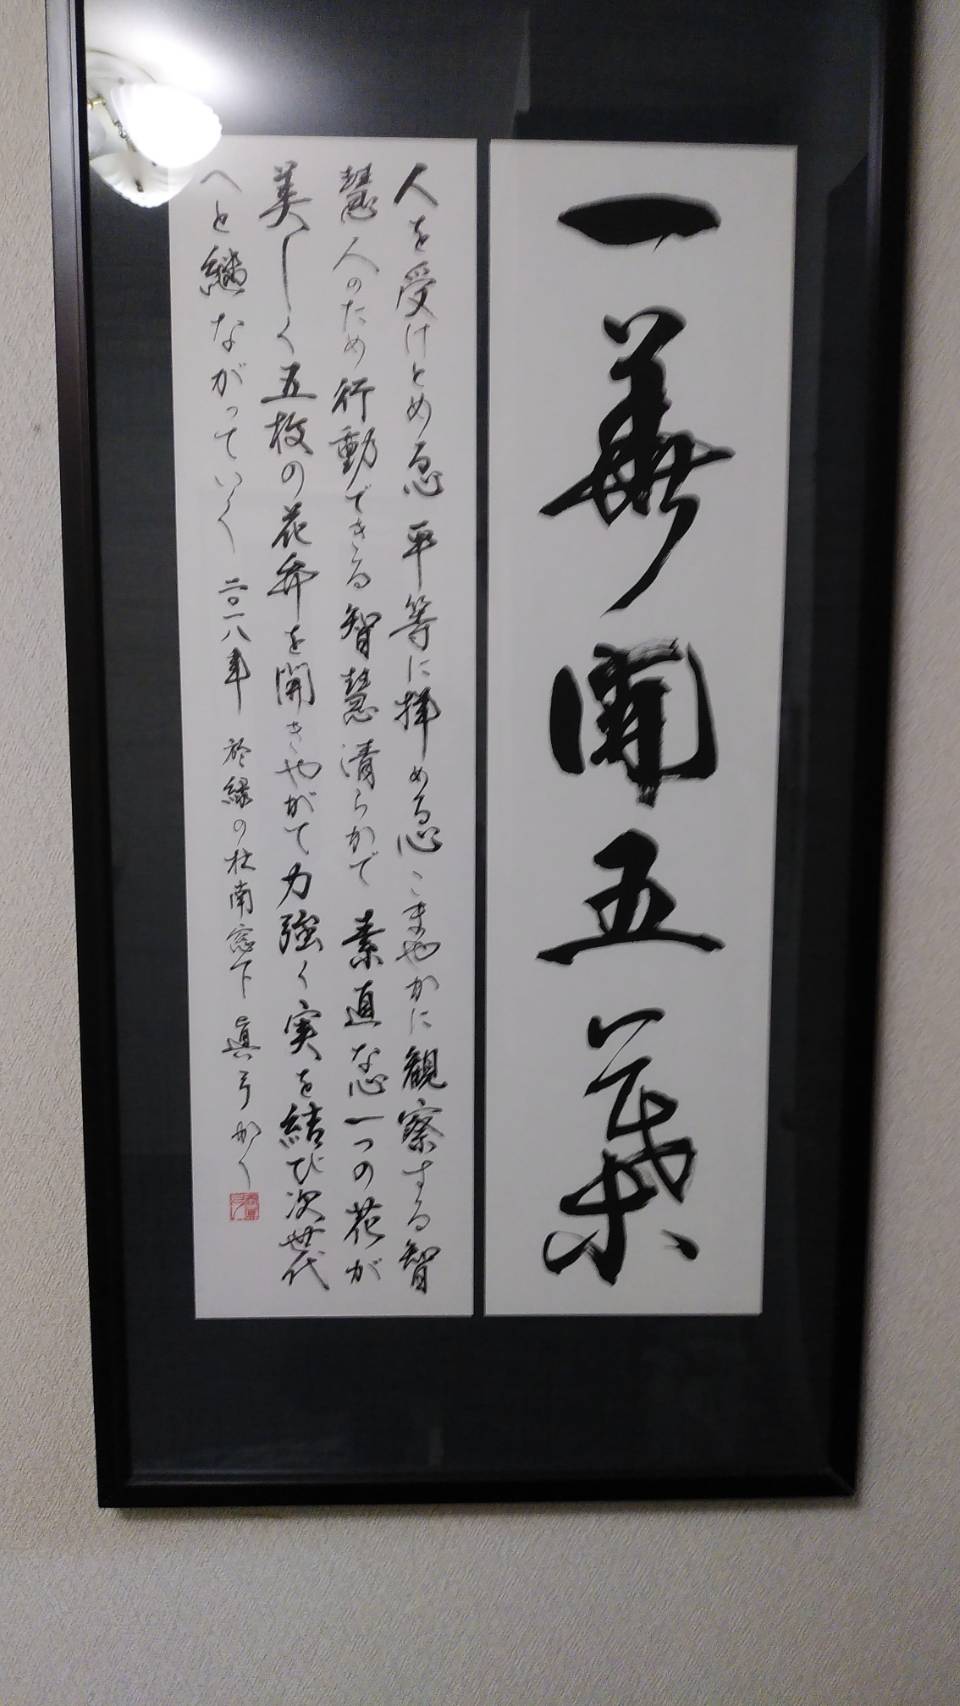 一華開五葉
人を受けとめる心 平等に拝める心 こまやかに観察する智
慧 人のため行動できる智慧 清らかで 素直な心 一つの花が
美しく五枚の花弁を開き やがて力強く実を結び次世代
へと継ながっていく 二〇一八年 於緑の杜南窓下 眞弓かく